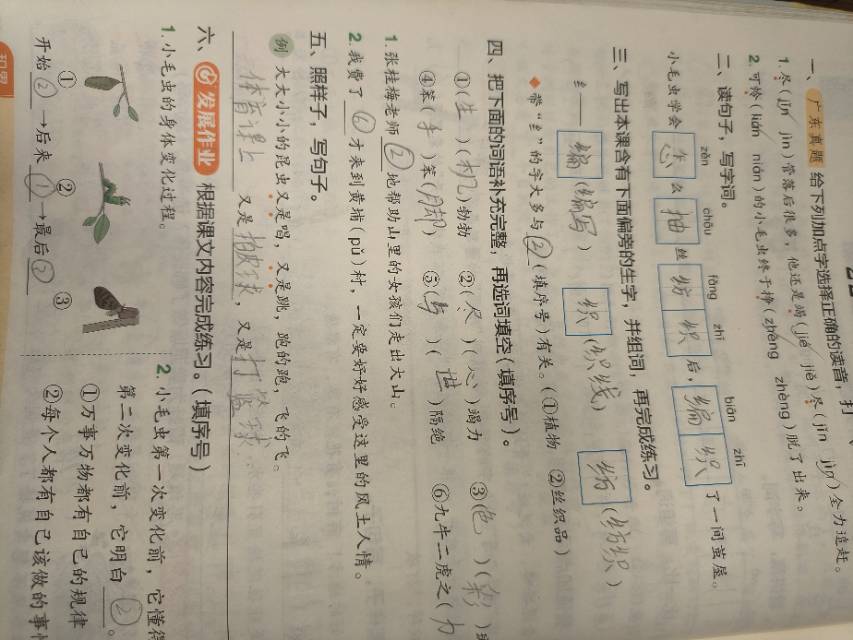 一、广东真题 给下列加点字选择正确的读音，打
1. 尽(jǐn jìn)管落后很多，他还是竭(jié jiè)尽(jǐn jìn)全力追赶。
2. 可怜(lián nián)的小毛虫终于挣(zhēng zhèng)脱了出来。
二、读句子，写字词。
zěn chōu fǎng zhī biān zhī
小毛虫学会怎么抽丝纺织后，编织了一间茧屋。
三、写出本课含有下面偏旁的生字，并组词，再完成练习。
纟——编(编写) 织(织线) 纺(纺织)
◆带“纟”的字大多与②(填序号)有关。(①植物 ②丝织品)
四、把下面的词语补充完整，再选词填空(填序号)。
①(生)(机)勃勃 ②(尽)(心)竭力 ③(色)(彩)
④笨(手)笨(脚) ⑤(与)(世)隔绝 ⑥九牛二虎之(力
1. 张桂梅老师②地帮助山里的女孩们走出大山。
2. 我费了⑥才来到黄埔(pǔ)村，一定要好好感受这里的风土人情。
五、照样子，写句子。
例 大大小小的昆虫又是唱，又是跳，跑的跑，飞的飞。
体育课上又是拍球，又是打篮球。
六、发展作业 根据课文内容完成练习。(填序号)
1. 小毛虫的身体变化过程。
① ② ③
开始②→后来①→最后③
2. 小毛虫第一次变化前，它懂得
第二次变化前，它明白②。
①万事万物都有自己的规律
②每个人都有自己该做的事